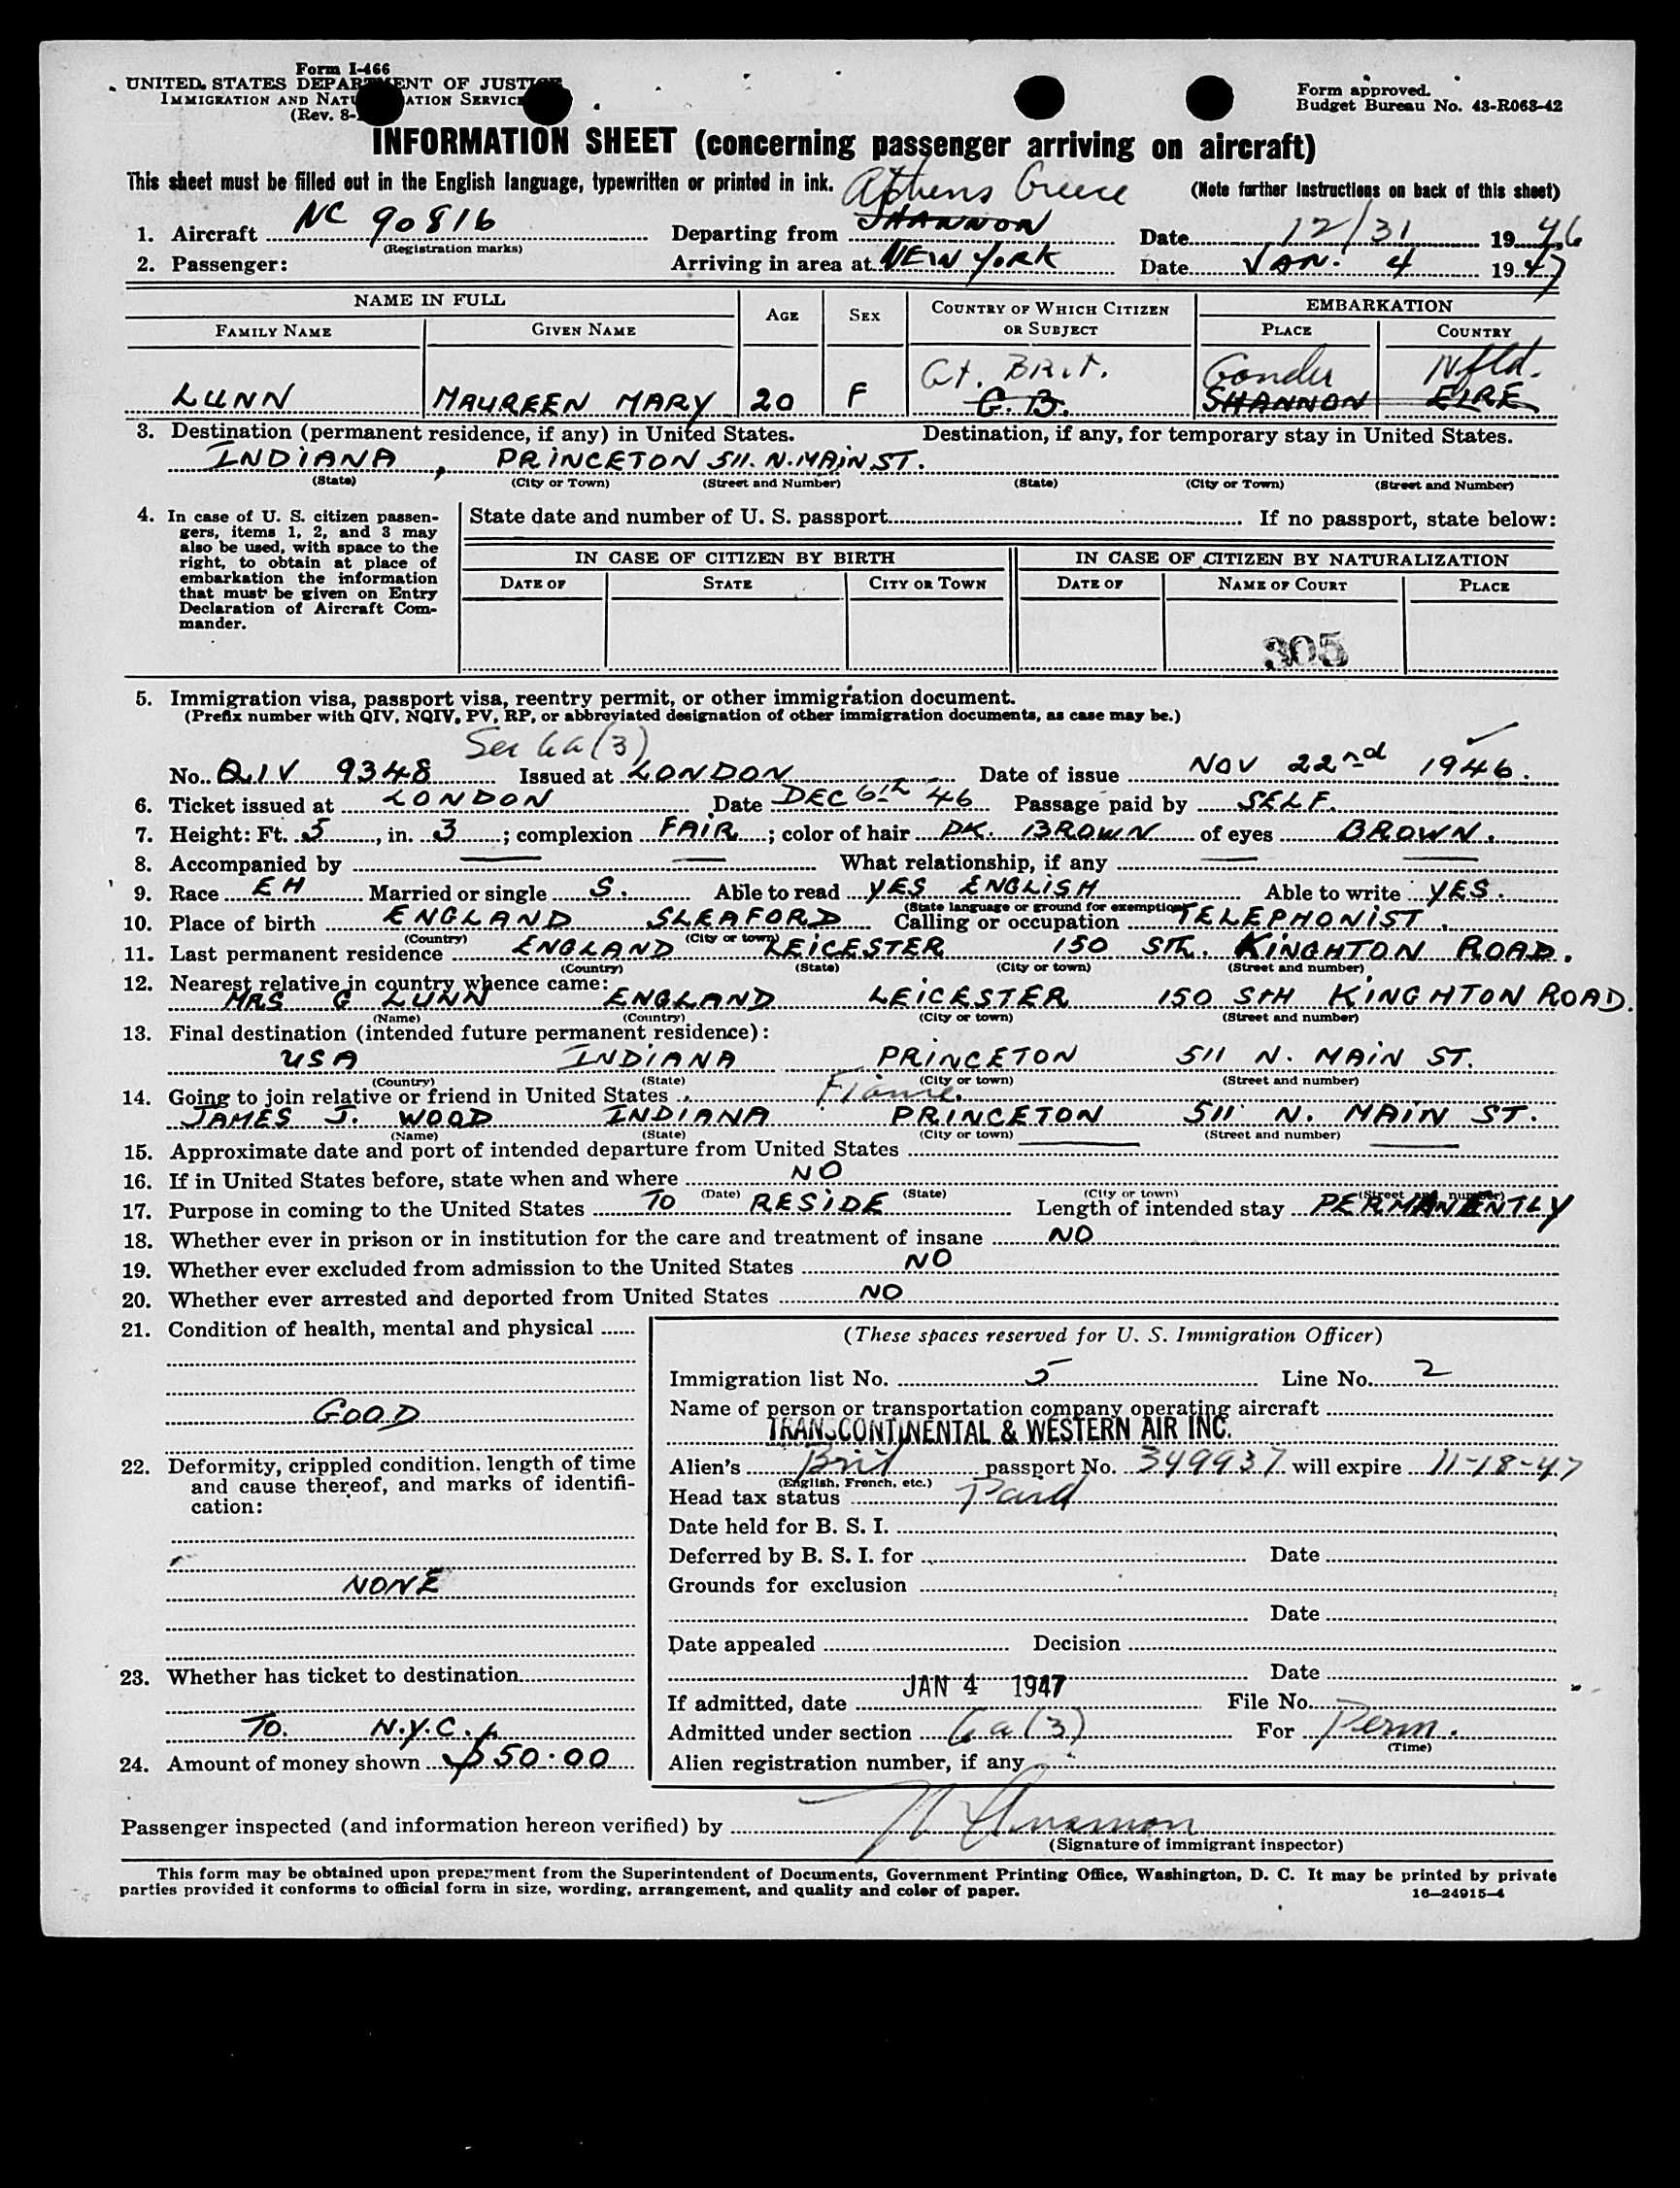 Form I-466
UNITED STATES DEPARTMENT OF JUSTICE
IMMIGRATION AND NATURALIZATION SERVICE
(Rev. 8-
Form approved.
Budget Bureau No. 43-R063-42
INFORMATION SHEET (concerning passenger arriving on aircraft)
This sheet must be filled out in the English language, typewritten or printed in ink. (Note further instructions on back of this sheet)
Athens Greece
1. Aircraft NC 90816 Departing from SHANNON Date 12/31 1946
(Registration marks)
2. Passenger: Arriving in area at NEW YORK Date JAN. 4 1947
NAME IN FULL AGE SEX COUNTRY OF WHICH CITIZEN OR SUBJECT EMBARKATION
FAMILY NAME GIVEN NAME PLACE COUNTRY
Gt. BRIT. Gander Nfld.
LUNN MAUREEN MARY 20 F G.B. SHANNON EIRE
3. Destination (permanent residence, if any) in United States. Destination, if any, for temporary stay in United States.
INDIANA, PRINCETON 511. N. MAIN ST.
(State) (City or Town) (Street and Number) (State) (City or Town) (Street and Number)
4. In case of U. S. citizen passen-
gers, items 1, 2, and 3 may
also be used, with space to the
right, to obtain at place of
embarkation the information
that must be given on Entry
Declaration of Aircraft Com-
mander.
State date and number of U. S. passport If no passport, state below:
IN CASE OF CITIZEN BY BIRTH IN CASE OF CITIZEN BY NATURALIZATION
DATE OF STATE CITY OR TOWN DATE OF NAME OF COURT PLACE
305
5. Immigration visa, passport visa, reentry permit, or other immigration document.
(Prefix number with QIV, NQIV, PV, RP, or abbreviated designation of other immigration documents, as case may be.)
Sec 6a(3)
No. QIV 9348 Issued at LONDON Date of issue NOV 22nd 1946.
6. Ticket issued at LONDON Date DEC 6th 46 Passage paid by SELF.
7. Height: Ft. 5, in. 3; complexion FAIR; color of hair DK. BROWN of eyes BROWN.
8. Accompanied by — — What relationship, if any — —
9. Race EH Married or single S. Able to read YES ENGLISH Able to write YES.
(State language or ground for exemption)
10. Place of birth ENGLAND SLEAFORD Calling or occupation TELEPHONIST.
(Country) (City or town)
11. Last permanent residence ENGLAND LEICESTER 150 STH. KINGHTON ROAD.
(Country) (State) (City or town) (Street and number)
12. Nearest relative in country whence came:
MRS G LUNN ENGLAND LEICESTER 150 STH KINGHTON ROAD.
(Name) (Country) (City or town) (Street and number)
13. Final destination (intended future permanent residence):
USA INDIANA PRINCETON 511 N. MAIN ST.
(Country) (State) (City or town) (Street and number)
14. Going to join relative or friend in United States Fiance.
JAMES J. WOOD INDIANA PRINCETON 511 N. MAIN ST.
(Name) (State) (City or town) (Street and number)
15. Approximate date and port of intended departure from United States — —
16. If in United States before, state when and where NO
(Date) (State) (City or town) (Street and number)
17. Purpose in coming to the United States TO RESIDE Length of intended stay PERMANENTLY
18. Whether ever in prison or in institution for the care and treatment of insane NO
19. Whether ever excluded from admission to the United States NO
20. Whether ever arrested and deported from United States NO
21. Condition of health, mental and physical
GOOD
22. Deformity, crippled condition, length of time
and cause thereof, and marks of identifi-
cation:
NONE
23. Whether has ticket to destination
TO. N.Y.C.
24. Amount of money shown $50.00
(These spaces reserved for U. S. Immigration Officer)
Immigration list No. 5 Line No. 2
Name of person or transportation company operating aircraft
TRANSCONTINENTAL & WESTERN AIR INC.
Alien's Brit passport No. 349937 will expire 11-18-47
(English, French, etc.)
Head tax status Paid
Date held for B. S. I.
Deferred by B. S. I. for Date
Grounds for exclusion
Date
Date appealed Decision
Date
If admitted, date JAN 4 1947 File No.
Admitted under section 6a(3) For Perm.
(Time)
Alien registration number, if any
Passenger inspected (and information hereon verified) by
(Signature of immigrant inspector)
This form may be obtained upon prepayment from the Superintendent of Documents, Government Printing Office, Washington, D. C. It may be printed by private
parties provided it conforms to official form in size, wording, arrangement, and quality and color of paper. 16—24915-4